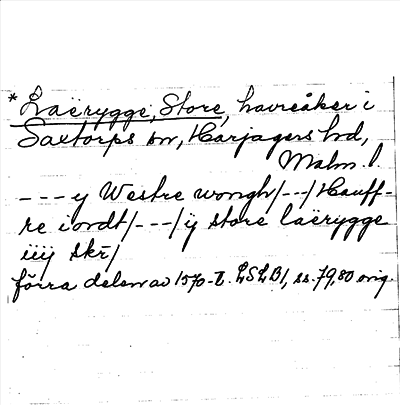 * Laërygge, Store, havreåker i
Saxtorps sn, Harjagers hd,
Malm. l.
- - - y Westre wongh/--/Hauff-
re iordt/---/ÿ store laërygge
iiij skr/
förra delen av 1570-t. LSLB1, ss. 79, 80 orig.